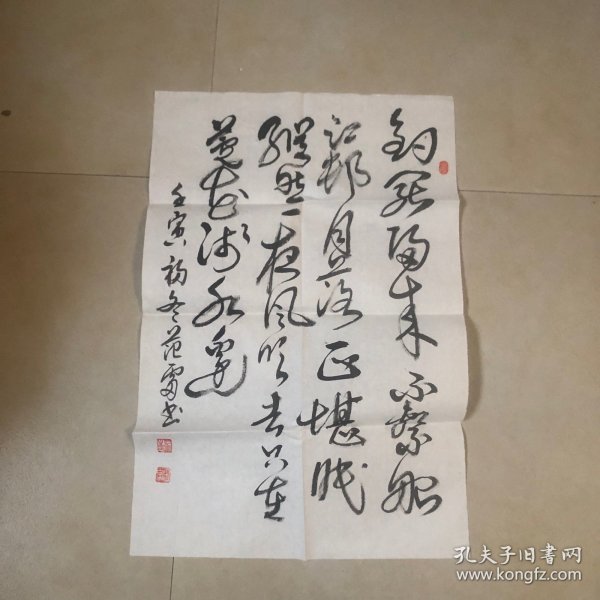 钓罢归来不系船
江村月落正堪眠
纵然一夜风吹去只在
芦花浅水边
壬寅初冬范雷书
孔夫子旧书网
www.kongfz.com